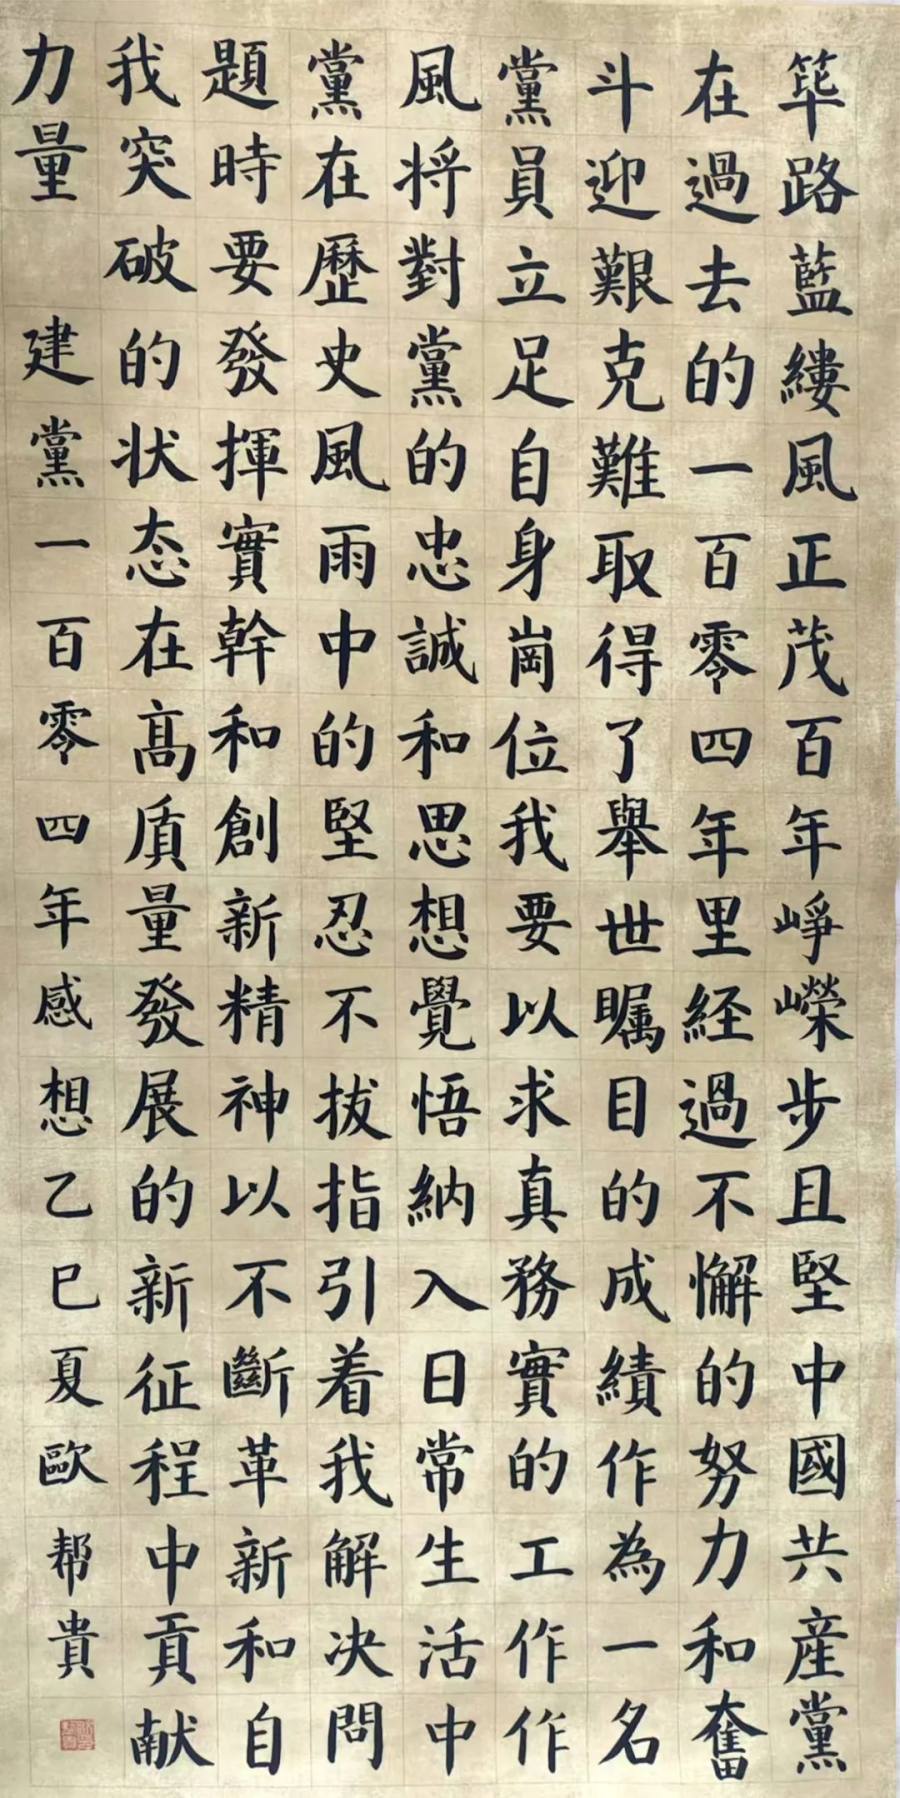 筚路藍縷風正茂百年崢嶸步且堅中國共産黨
在過去的一百零四年里経過不懈的努力和奮
斗迎艱克難取得了舉世瞩目的成績作為一名
黨員立足自身崗位我要以求真務實的工作作
風将對黨的忠誠和思想覺悟納入日常生活中
黨在歷史風雨中的堅忍不拔指引着我解决問
題時要發揮實幹和創新精神以不斷革新和自
我突破的状态在高质量發展的新征程中貢献
力量 建黨一百零四年感想乙巳夏歐帮貴